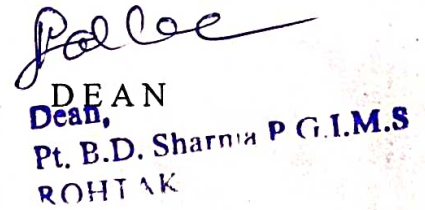 DEAN
Dean,
Pt. B.D. Sharma P G.I.M.S
ROHTAK